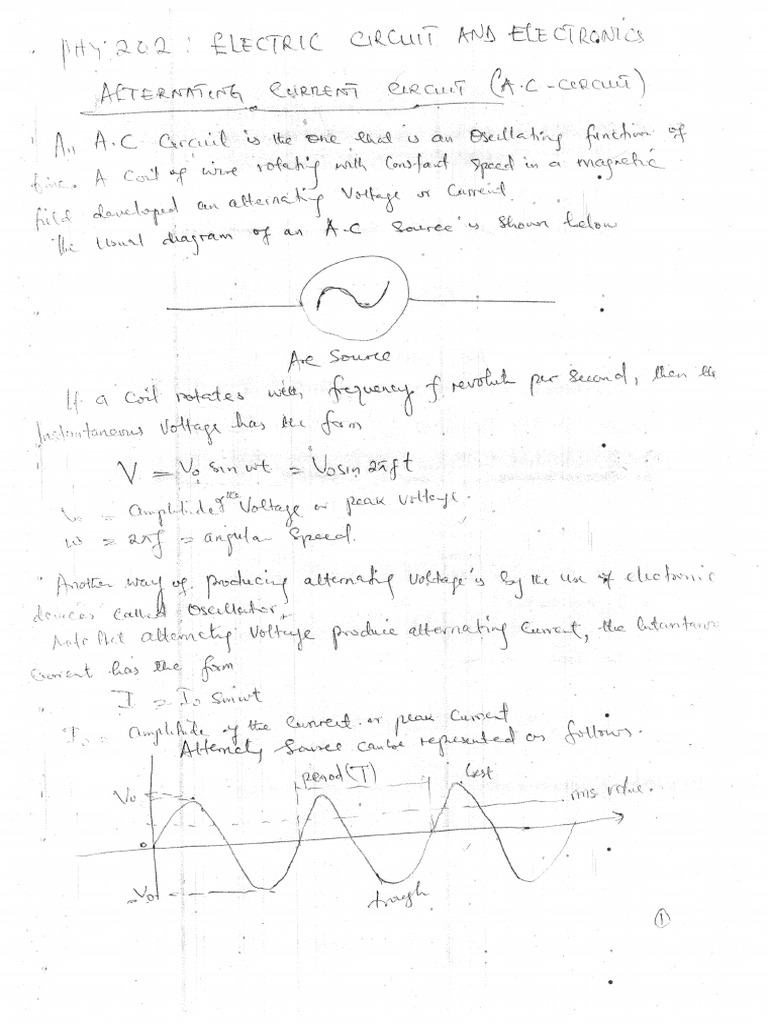 PHY 202: ELECTRIC CIRCUIT AND ELECTRONICS
ALTERNATING CURRENT CIRCUIT (A.C-CIRCUIT)
An A.C Circuit is the one that is an Oscillating function of
time. A Coil of wire rotating with Constant Speed in a magnetic
field developed an alternating Voltage or Current.
The Usual diagram of an A.C Source is Shown below
A.c Source
If a Coil rotates with frequency f revolution per Second, then the
Instantaneous Voltage has the form
V = V₀ sin wt = V₀ sin 2πft
V₀ = amplitude of the Voltage or peak voltage.
w = 2πf = angular Speed.
Another way of producing alternating voltage is by the use of electronic
devices Called Oscillator.
Note that alternating Voltage produce alternating Current, the Instantaneous
Current has the form
I = I₀ Sin wt
I₀ = amplitude of the Current or peak Current
Alternating Source can be represented as follows.
period (T)
V₀
rms value.
0
-V₀
trough
1